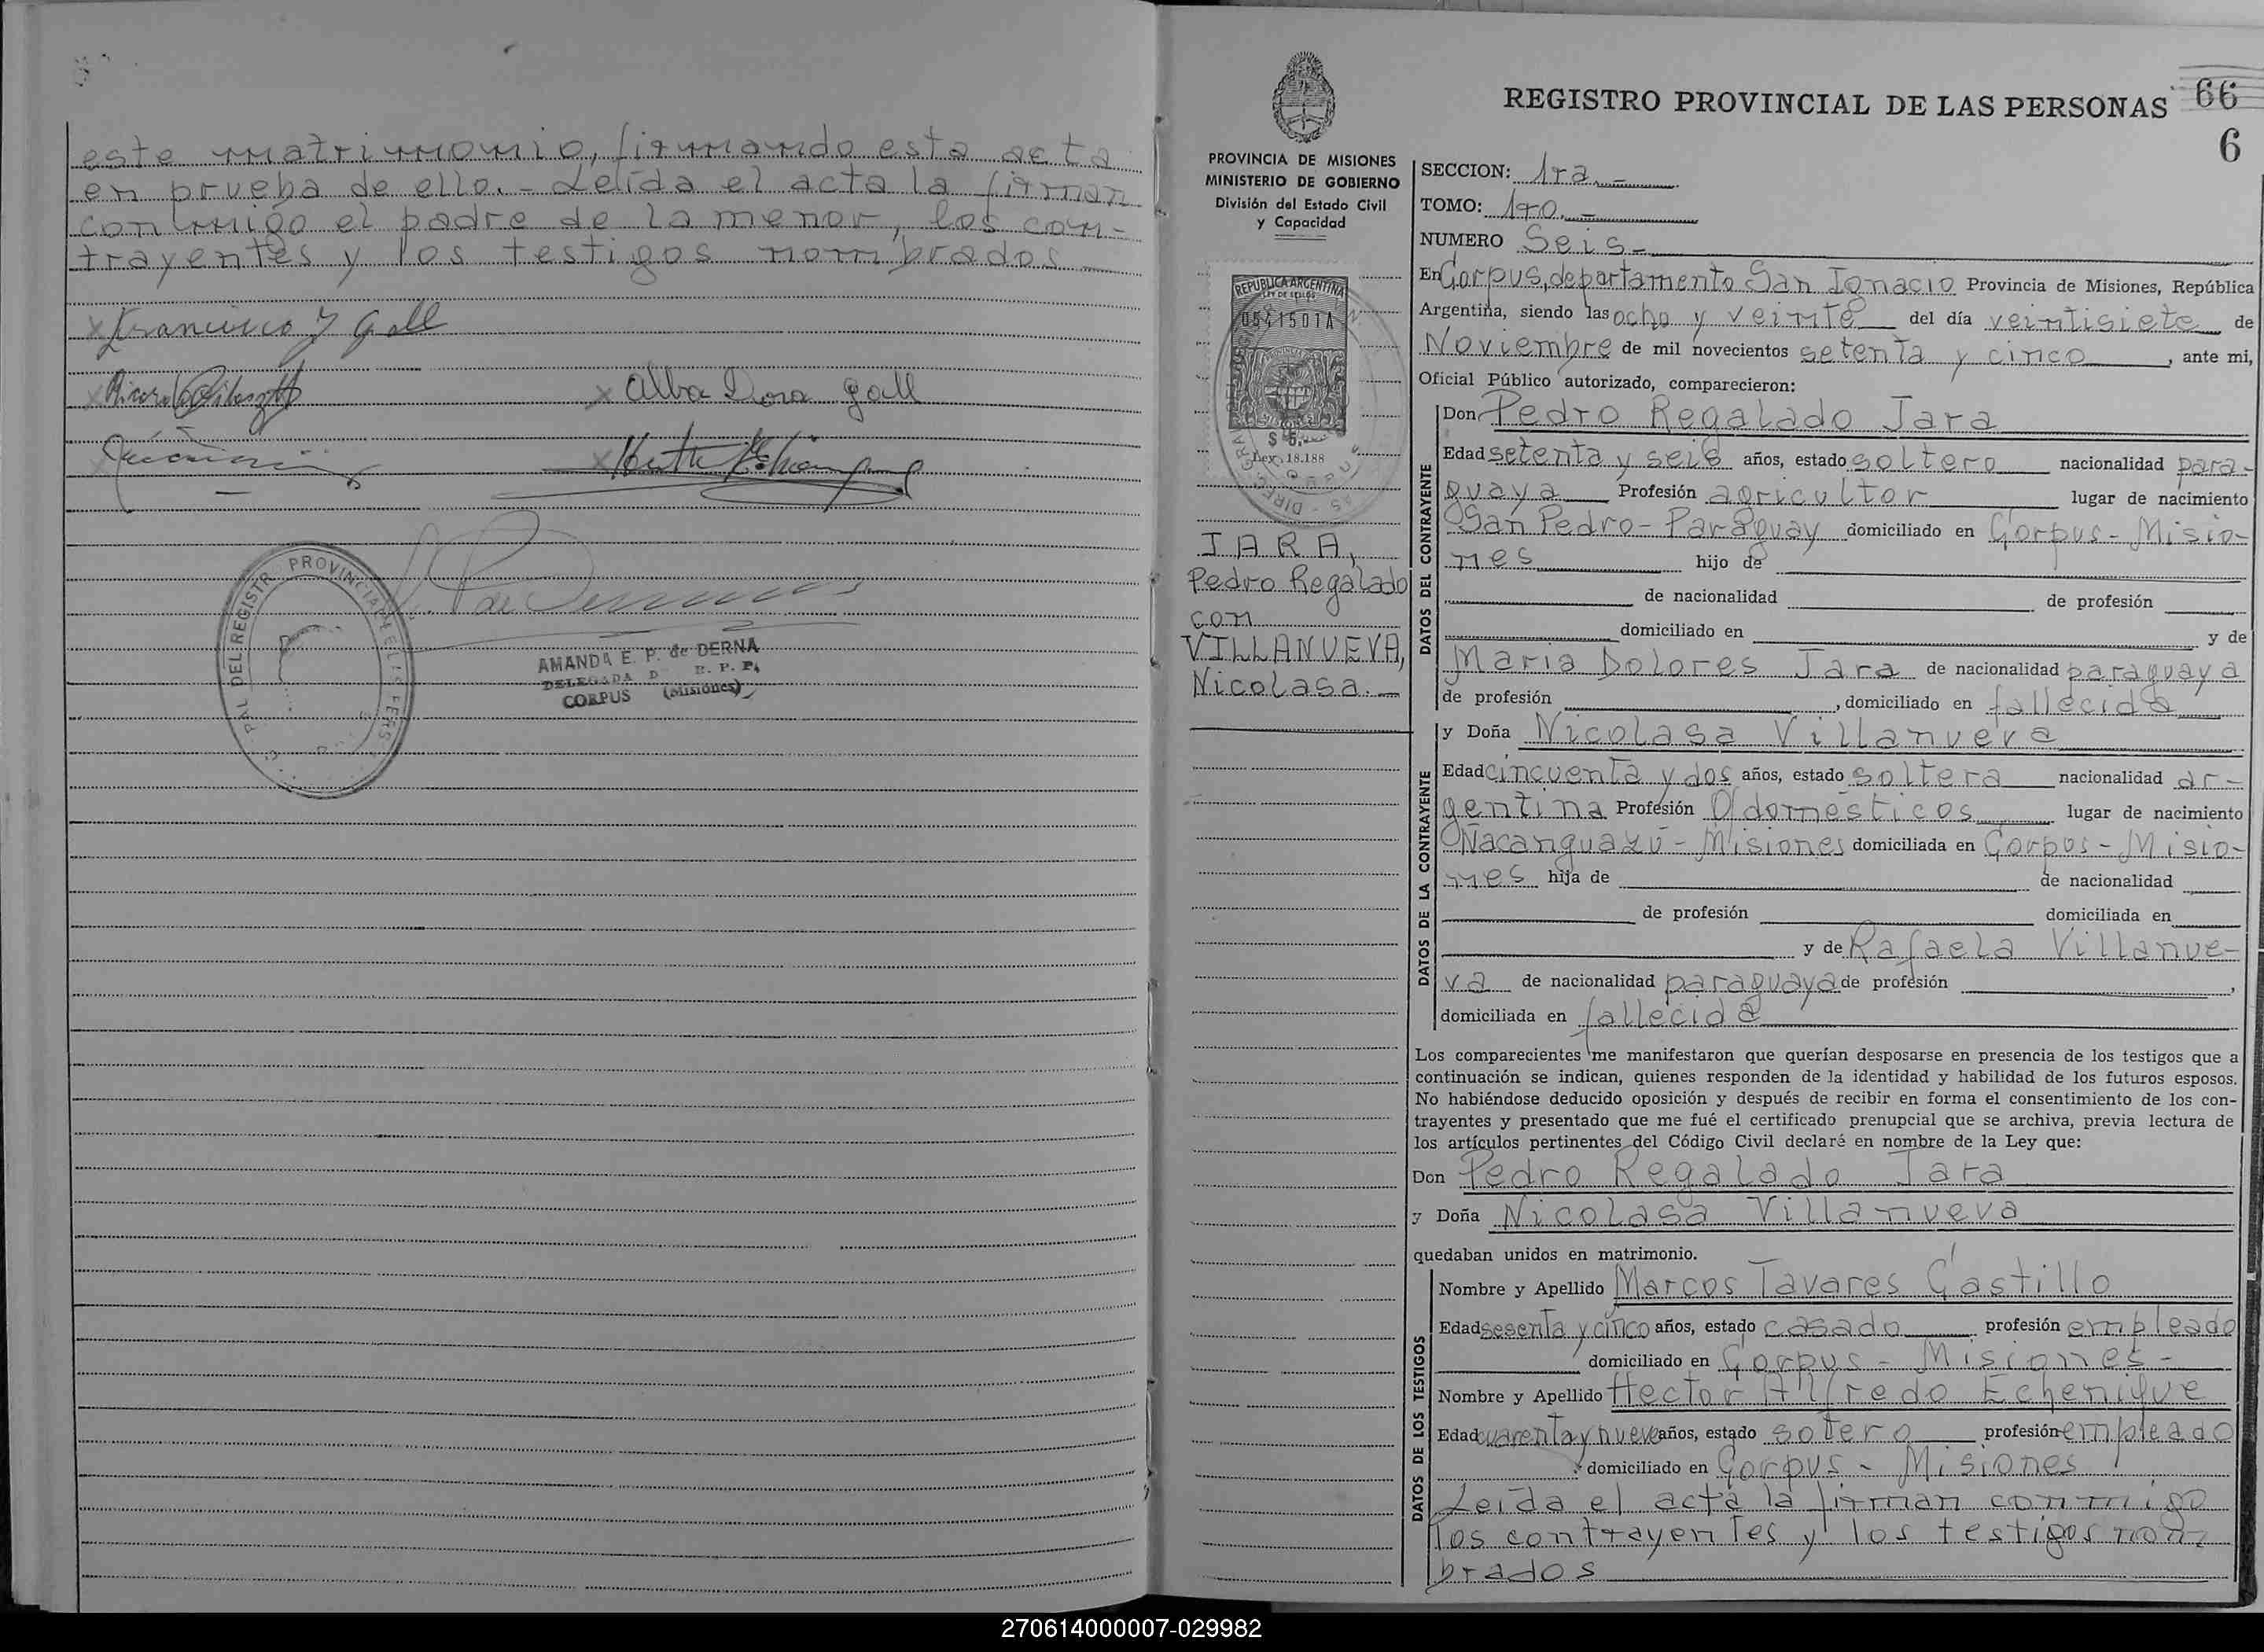 este matrimonio, firmando esta acta
en prueba de ello.- Leída el acta la firman
conmigo el padre de la menor, los con-
trayentes y los testigos nombrados
x Francisco J Gall
x Alba Dora Gall
PROVINCIAL
DEL REGISTR
AMANDA E. P. de DERNA
DELEGADA D R. P. P.
CORPUS (Misiones)
66
REGISTRO PROVINCIAL DE LAS PERSONAS
6
PROVINCIA DE MISIONES
MINISTERIO DE GOBIERNO
División del Estado Civil
y Capacidad
REPUBLICA ARGENTINA
LEY DE SELLOS
0541501A
$ 5.
Ley 18.188
JARA,
Pedro Regalado
con
VILLANUEVA,
Nicolasa.-
SECCION: 1ra.-
TOMO: 1ro.-
NUMERO Seis-
En Corpus, departamento San Ignacio Provincia de Misiones, República
Argentina, siendo las ocho y veinte del día veintisiete de
Noviembre de mil novecientos setenta y cinco, ante mi,
Oficial Público autorizado, comparecieron:
DATOS DEL CONTRAYENTE
Don Pedro Regalado Jara
Edad setenta y seis años, estado soltero nacionalidad para-
guaya Profesión agricultor lugar de nacimiento
San Pedro-Paraguay domiciliado en Corpus-Misio-
nes hijo de
de nacionalidad de profesión
domiciliado en y de
Maria Dolores Jara de nacionalidad paraguaya
de profesión , domiciliado en fallecida
DATOS DE LA CONTRAYENTE
y Doña Nicolasa Villanueva
Edad cincuenta y dos años, estado soltera nacionalidad ar-
gentina Profesión Q/domésticos lugar de nacimiento
Ñacanguazú-Misiones domiciliada en Corpus-Misio-
nes hija de de nacionalidad
de profesión domiciliada en
y de Rafaela Villanue-
va de nacionalidad paraguaya de profesión ,
domiciliada en fallecida
Los comparecientes me manifestaron que querían desposarse en presencia de los testigos que a
continuación se indican, quienes responden de la identidad y habilidad de los futuros esposos.
No habiéndose deducido oposición y después de recibir en forma el consentimiento de los con-
trayentes y presentado que me fué el certificado prenupcial que se archiva, previa lectura de
los artículos pertinentes del Código Civil declaré en nombre de la Ley que:
Don Pedro Regalado Jara
y Doña Nicolasa Villanueva
quedaban unidos en matrimonio.
DATOS DE LOS TESTIGOS
Nombre y Apellido Marcos Tavares Castillo
Edad sesenta y cinco años, estado casado profesión empleado
domiciliado en Corpus - Misiones-
Nombre y Apellido Hector Alfredo Echenique
Edad cuarenta y nueve años, estado sotero profesión empleado
domiciliado en Corpus - Misiones
Leída el acta la firman conmigo
los contrayentes y los testigos nom-
brados
270614000007-029982